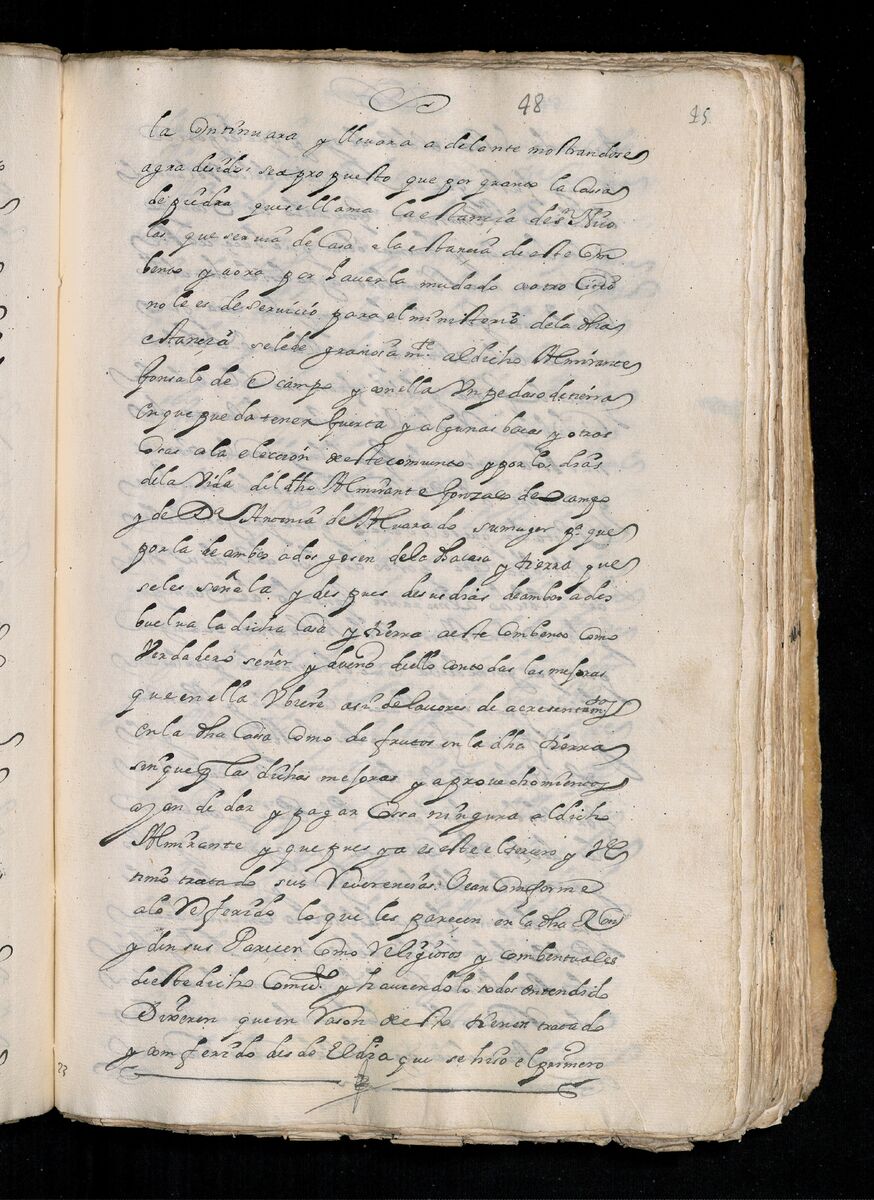 48
45
la continuara y lleuara adelante mostrandose
agradesido: sea propuesto que por quanto la Cassa
de piedra que se llama la estançia de sn Nico
las que seruia de Casa a la estançia de este Com
bento y aora por hauerla mudado a otro citio
no le es de seruicio para el ministerio de la dha
estançia se le de graciosa mte. al dicho Almirante
Gonsalo de Ocampo y con ella un pedaso de tierra
en que pueda tener huerta y algunas bacas y otras
Cosas a la elección de este comuento y por los dias
de la Vida del dho Almirante Gonzalo de Ocampo
y de Da Antonia de Aluarado su muger pa. que
por la de ambos a dos gosen de la dha casa y tierra que
se les señala y despues de sus dias de ambos a dos
buelua la dicha Casa y tierra a este Combento como
Verdadero señor y dueño de ello con todas las mejoras
que en ella Vbiere asi de lauores de acresentamto
en la dha Cassa como de frutos en la dha tierra
sin que por las dichas mejoras y aprouechamientos
ayan de dar y pagar Cossa ninguna al dicho
Almirante y que pues ya es este el terçero y Vl
timo tratado sus Reuerencias: Vean Comforme
a lo Referido lo que les pareçe en la dha Ron
y den sus Parecer Como Religiosos y combentuales
de este dicho Comto. y hauiendolo todos entendido
Dixeren que en Rason de esto tienen tratado
y comferido desde El dia que se hiso el primero
23